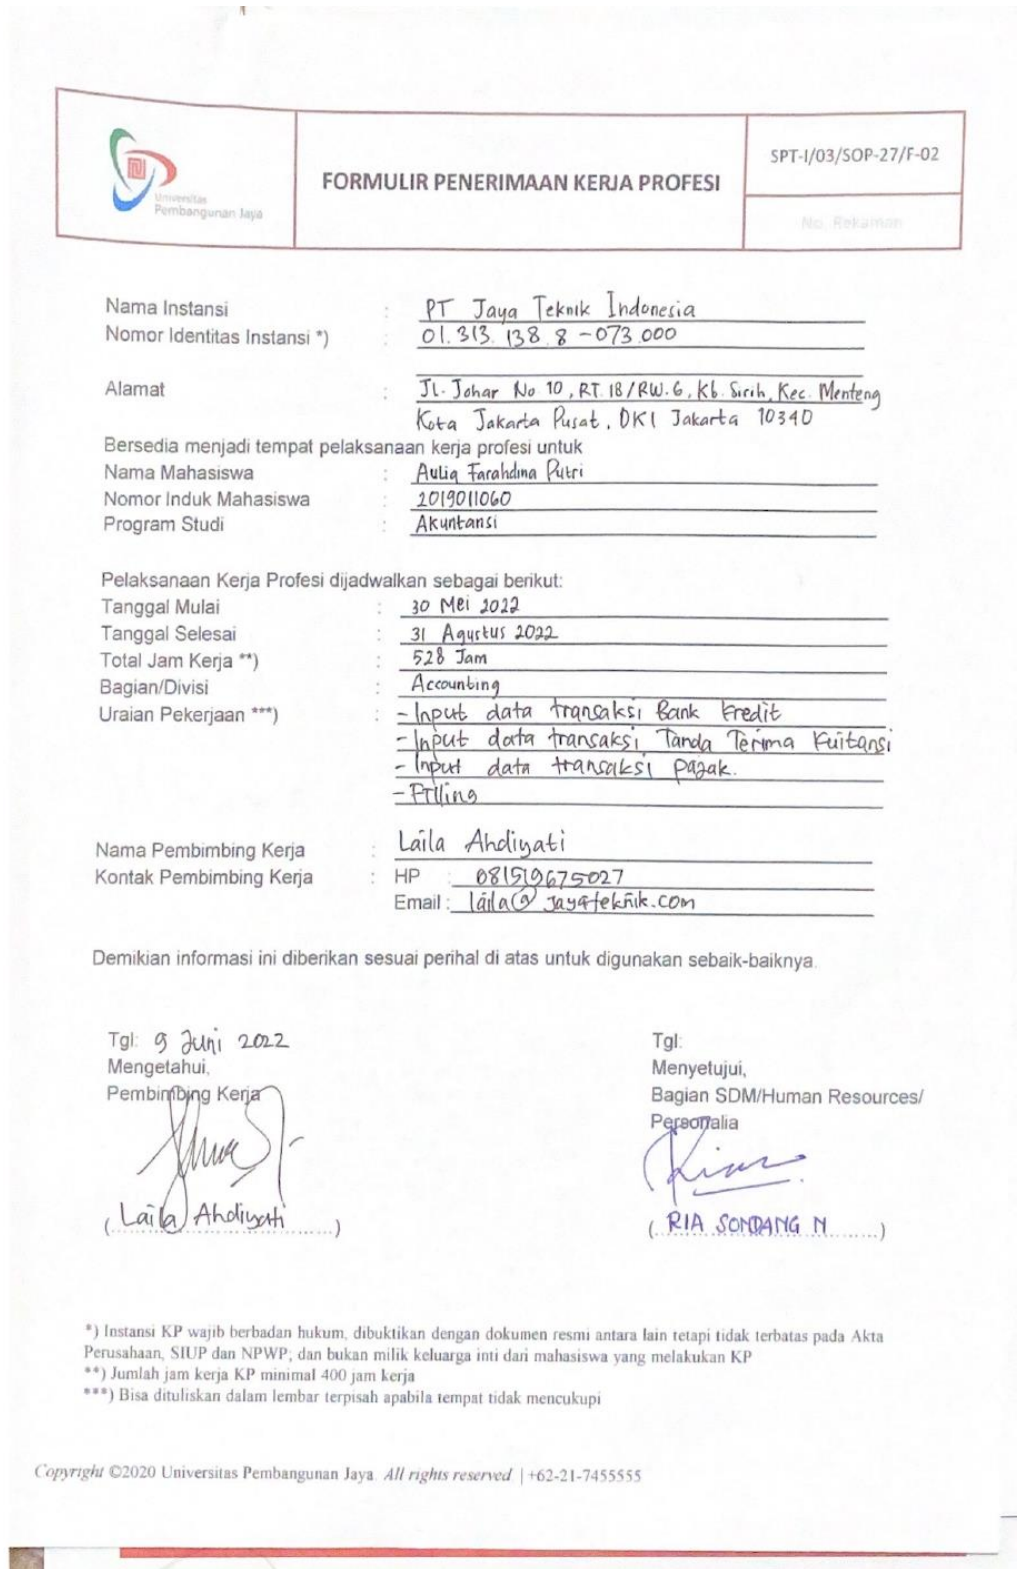 Universitas
Pembangunan Jaya
FORMULIR PENERIMAAN KERJA PROFESI
SPT-I/03/SOP-27/F-02
No. Rekaman
Nama Instansi : PT Jaya Teknik Indonesia
Nomor Identitas Instansi *) : 01.313.138.8-073.000
Alamat : Jl. Johar No 10, RT.18/RW.6, Kb. Sirih, Kec. Menteng
Kota Jakarta Pusat, DKI Jakarta 10340
Bersedia menjadi tempat pelaksanaan kerja profesi untuk
Nama Mahasiswa : Aulia Farahdina Putri
Nomor Induk Mahasiswa : 2019011060
Program Studi : Akuntansi
Pelaksanaan Kerja Profesi dijadwalkan sebagai berikut:
Tanggal Mulai : 30 Mei 2022
Tanggal Selesai : 31 Agustus 2022
Total Jam Kerja **) : 528 Jam
Bagian/Divisi : Accounting
Uraian Pekerjaan ***) : - Input data transaksi Bank Kredit
- Input data transaksi Tanda Terima Kuitansi
- Input data transaksi pajak.
- Filling
Nama Pembimbing Kerja : Laila Ahdiyati
Kontak Pembimbing Kerja : HP : 081519675027
Email : laila@jayateknik.com
Demikian informasi ini diberikan sesuai perihal di atas untuk digunakan sebaik-baiknya.
Tgl: 9 Juni 2022
Mengetahui,
Pembimbing Kerja
(Laila Ahdiyati)
Tgl:
Menyetujui,
Bagian SDM/Human Resources/
Personalia
(RIA SONDANG N)
*) Instansi KP wajib berbadan hukum, dibuktikan dengan dokumen resmi antara lain tetapi tidak terbatas pada Akta
Perusahaan, SIUP dan NPWP; dan bukan milik keluarga inti dari mahasiswa yang melakukan KP
**) Jumlah jam kerja KP minimal 400 jam kerja
***) Bisa dituliskan dalam lembar terpisah apabila tempat tidak mencukupi
Copyright ©2020 Universitas Pembangunan Jaya. All rights reserved | +62-21-7455555